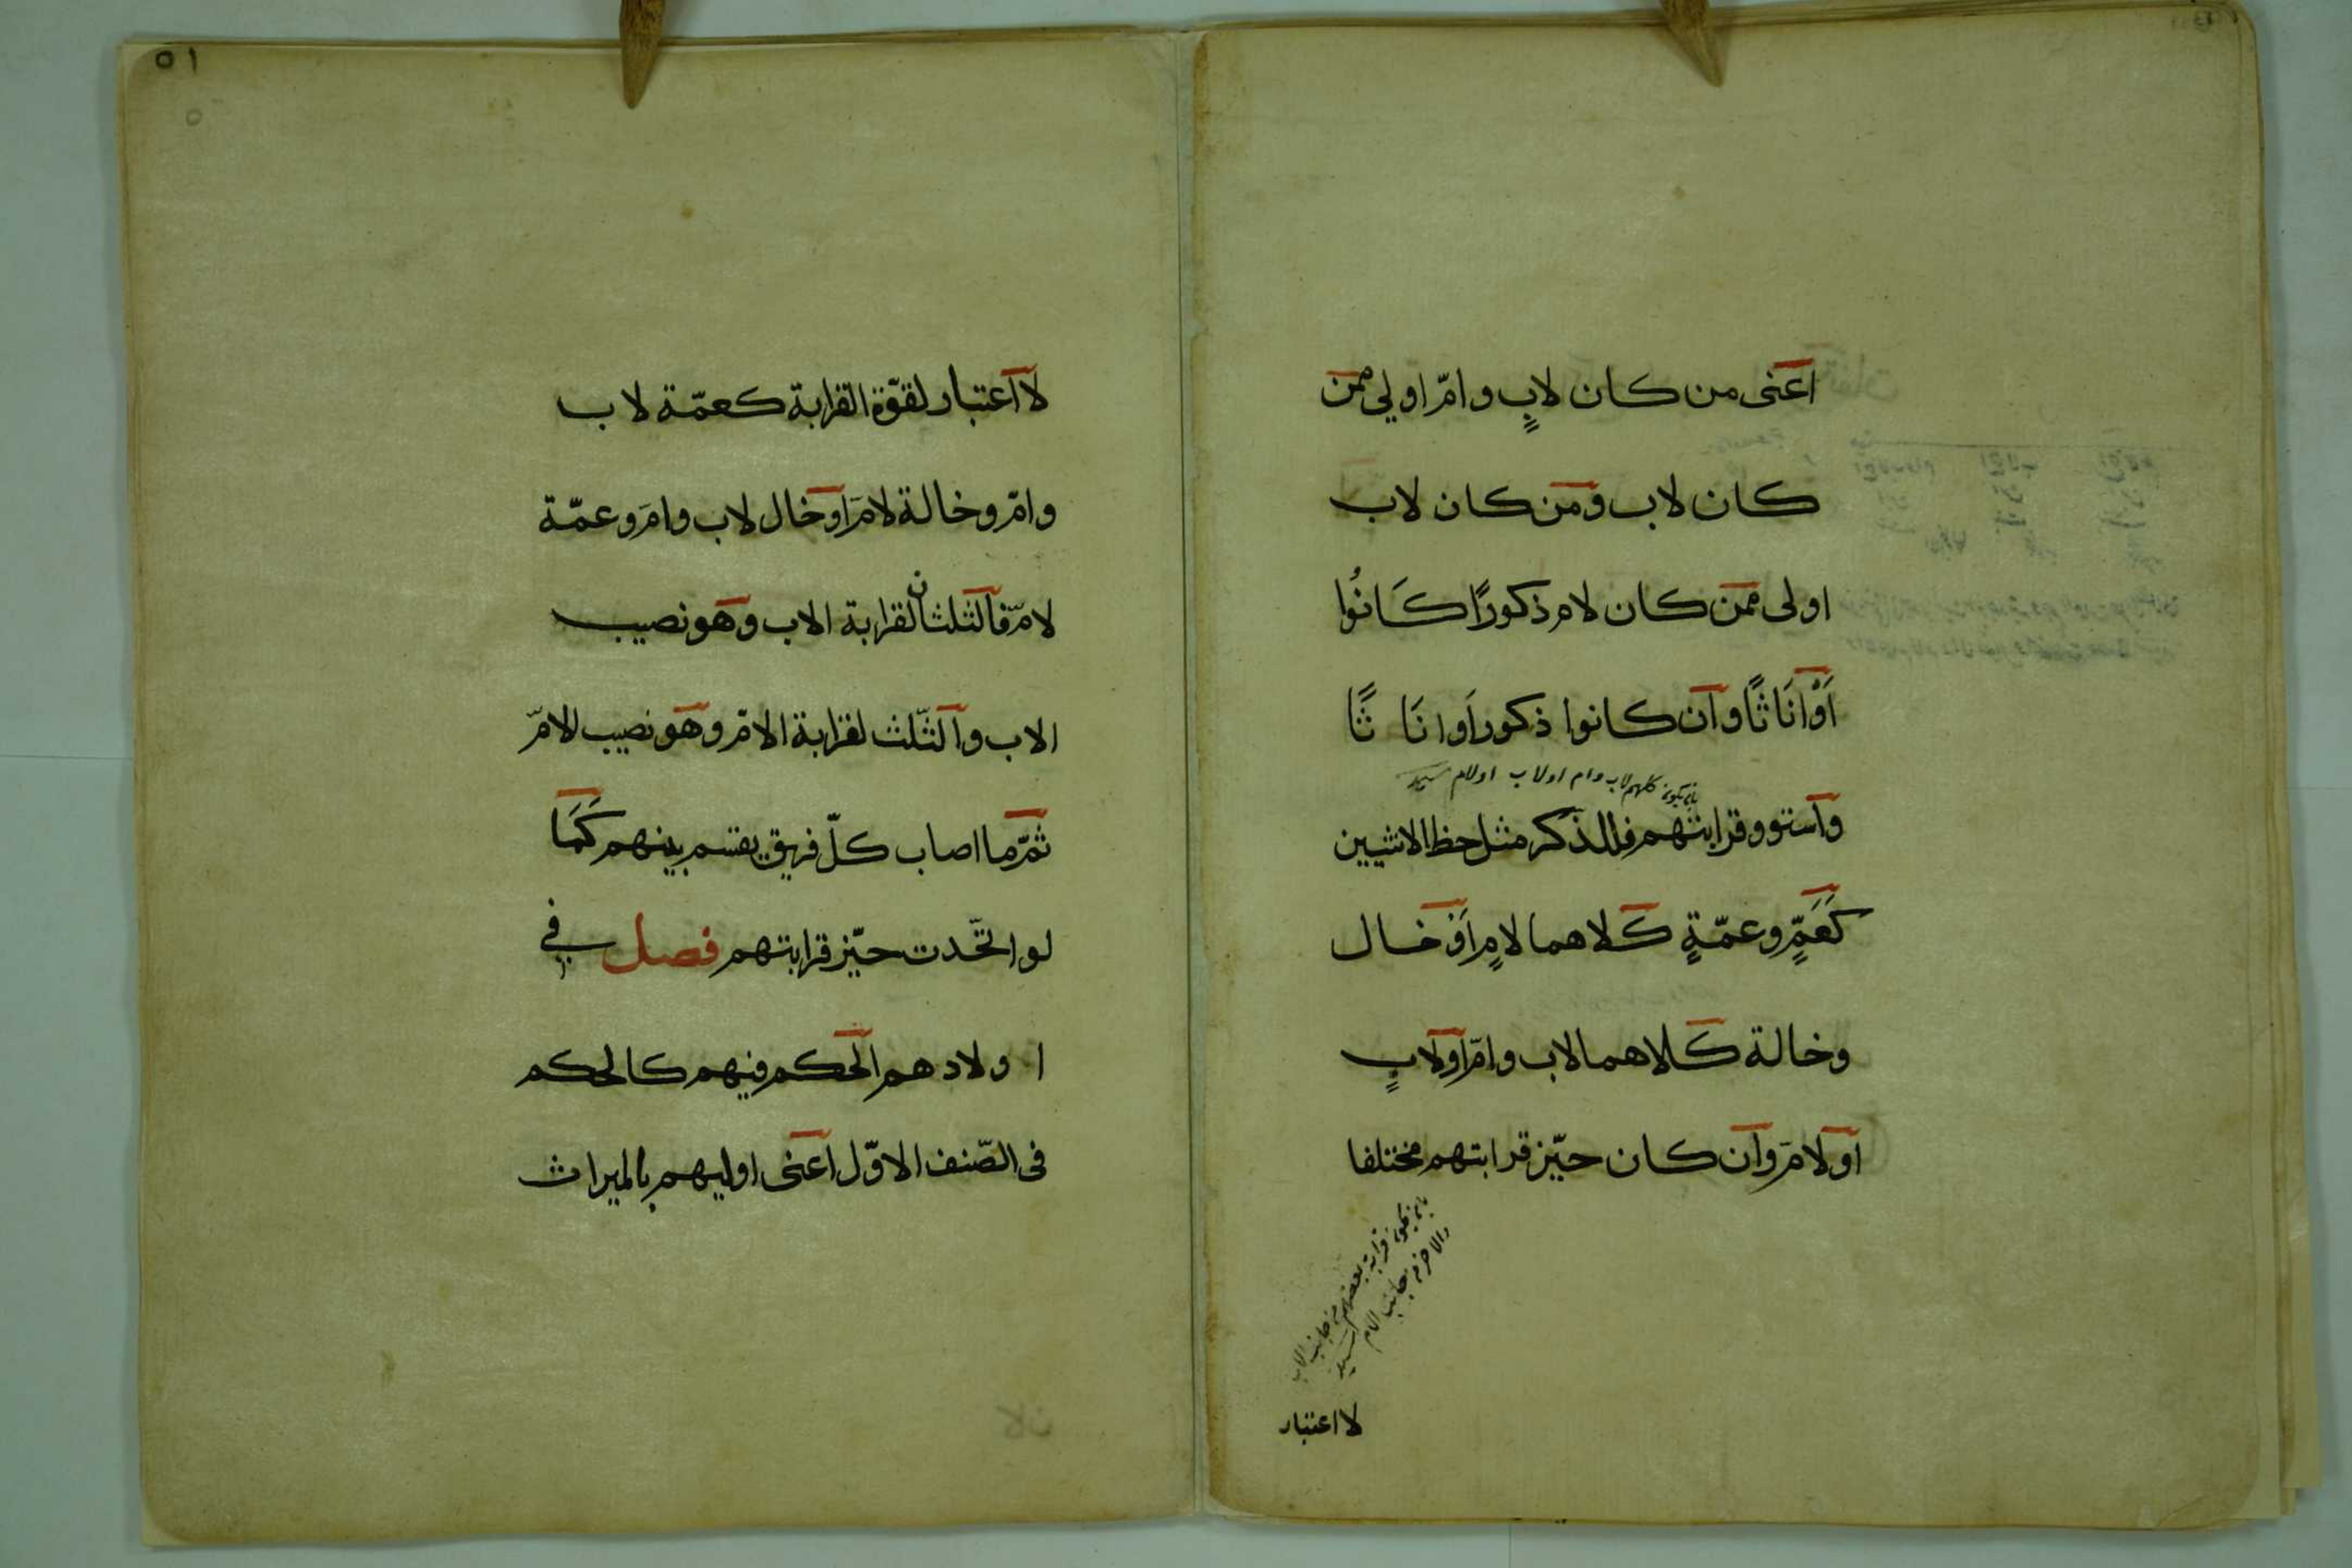 اعنى من كان لابٍ وامّ اولي ممن
كان لاب ومن كان لاب
اولى ممن كان لام ذكورًا كَانُوا
اَوْ انَاثًا وان كانوا ذكورا اَو انَا ثًا
بان يكون كلهم لاب وام او لاب او لام سيد
واستوو قرابتهم فللذكر مثل حظ الانثيين
كَعَمٍّ وعمّةٍ كلاهما لامٍ اَوْ خال
وخالة كلاهما لاب وامّ او لابٍ
او لام وان كان حيّز قرابتهم مختلفا
بان يكون قرابة بعضهم من جانب الاب
والاخر من جانب الام سيد
لا اعتبار
٥١
لا اعتبار لقوّة القرابة كعمّة لاب
وامّ وخالة لام او خال لاب وام وعمّة
لامّ فالثلثان لقرابة الاب وهو نصيب
الاب والثّلث لقرابة الامّ وهو نصيب الامّ
ثمّ ما اصاب كلّ فريق يقسم بينهم كَمَا
لو اتّحدت حيّز قرابتهم فصل في
ا ولادهم الحكم فيهم كالحكم
فى الصّنف الاوّل اعنى اوليهم بالميراث